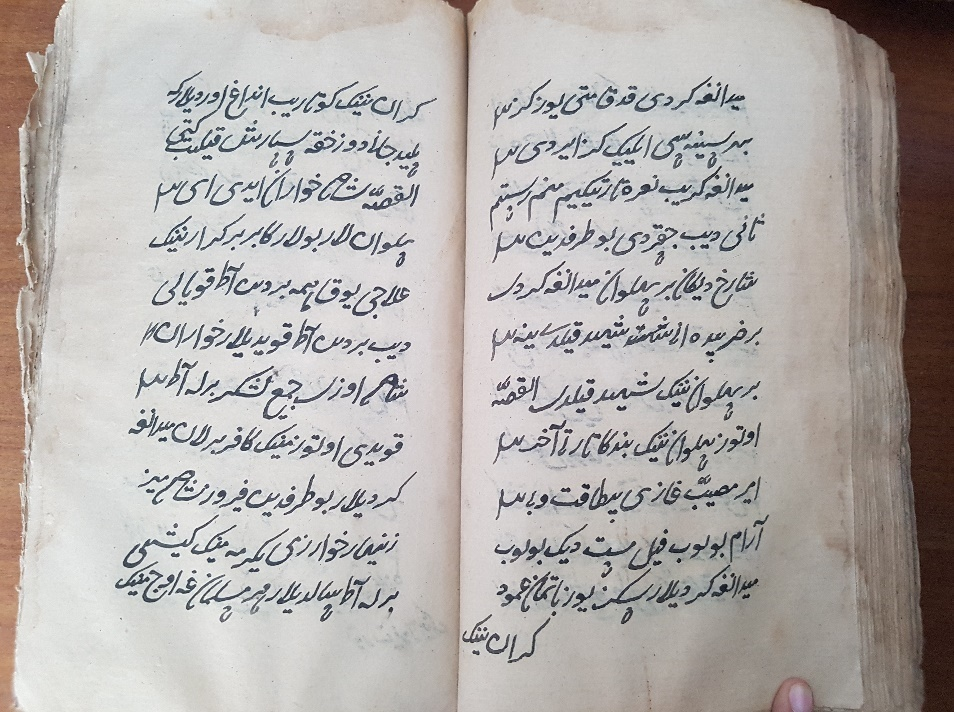 میدانغه کردی قد قامتی یوز کز
بر سپنه سی ایکیک کز ایردی
میدانغه کریب نعره تارتیکیم منم رستم
ثانی دیب جقردی بو طرفدین
شارخ دیکان بر پهلوان میدانغه کردی
بر ضربده انی شهید قیلدی ینه
بر پهلوان نینک شهید قیلدی القصّه
اوتوز پهلوان نینک بندکا تارتی آخر
امیر مصیّب غازی بیطاقت و بی
آرام بولوب فیل مست دیک بولوب
میدانغه کردیلار سکز یوز باتمان عمود
کران نینک
کران نینک کوتاریب انداغ اوردیلارکه
پلید جانی دوزخقه سپارش قیلیب کیتی
القصّه شاه خواران ایدی ای
پهلوان لار بولارکا بربر کرارنینک
علاجی یوق همه بردین آط قویالی
دیب بردین آط قویدیلار خواران
شاه اوزی جمع لشکر برله آط
قویدی اوتوز مینک کافر برلان میدانغه
کردیلار بو طرفدین فیروز شاه میز
خوارزمی یکرمه مینک کیشی
برله آط سالدیلار هر مسلمان غه اوج مینک